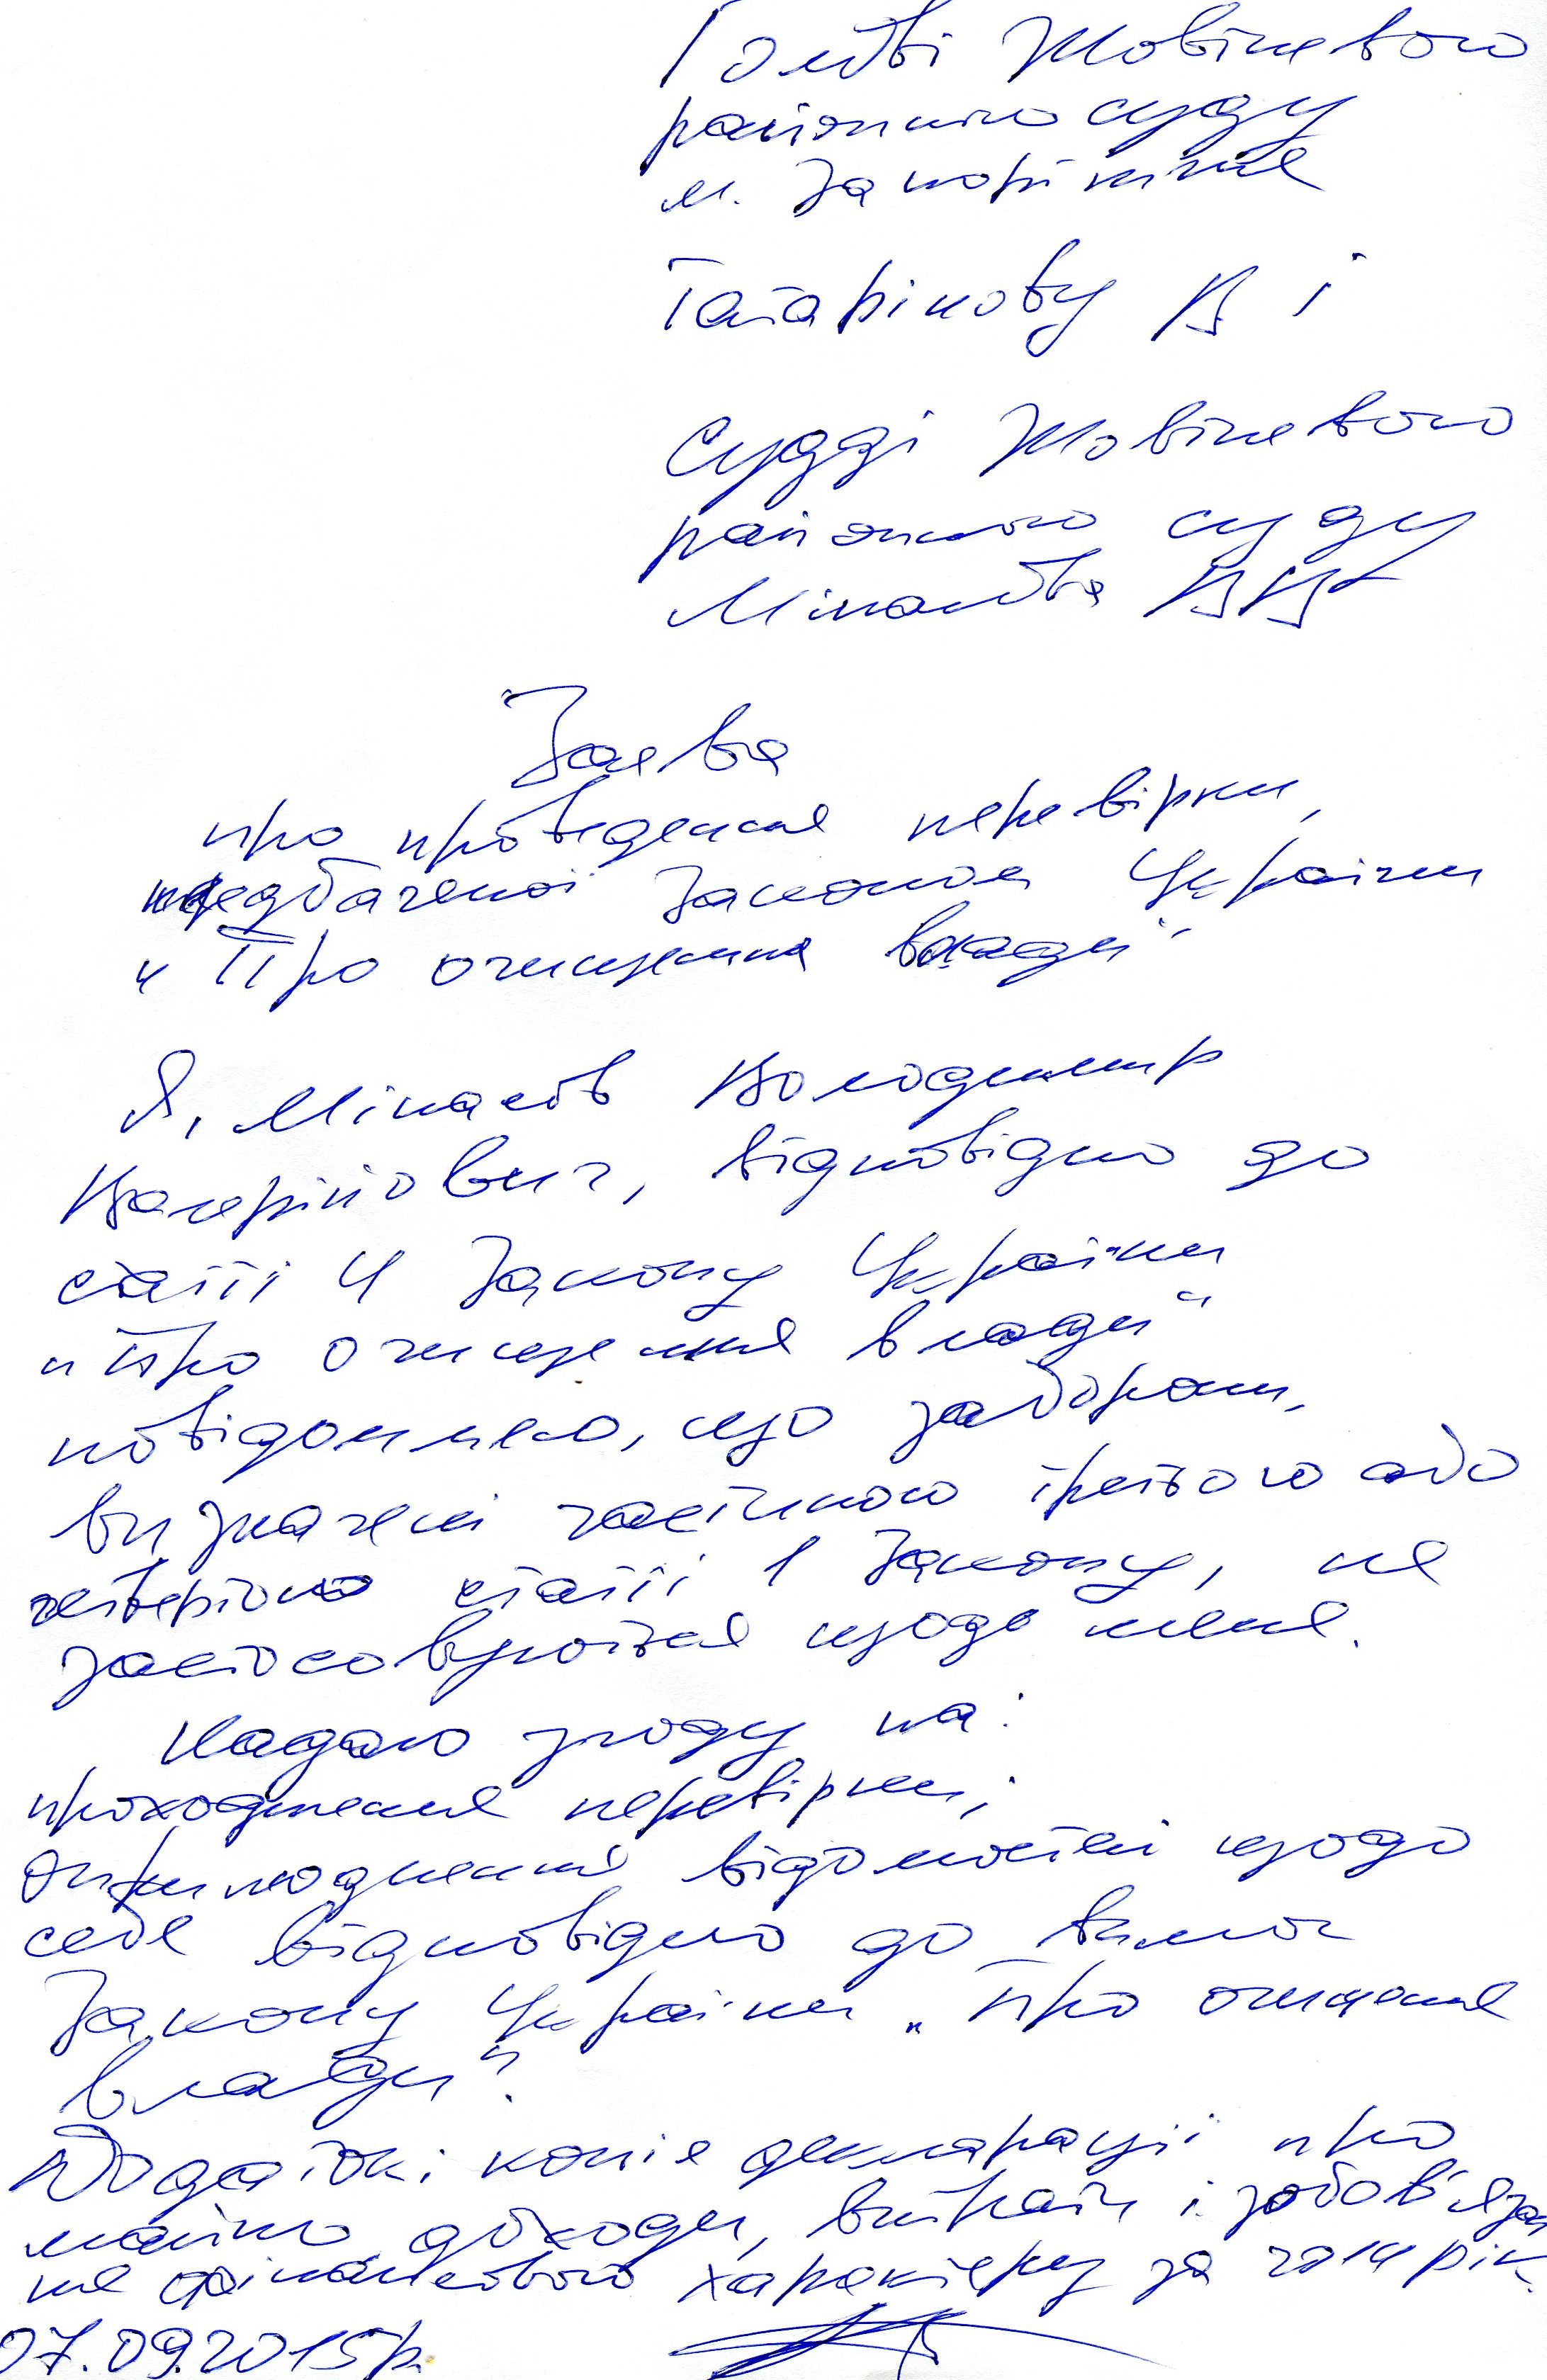 Голові Жовтневого
районного суду
м. Запоріжжя
Татарінову В І
Судді Жовтневого
районного суду
Мінасов В.В.
Заява
про проведення перевірки,
передбаченої Законом України
"Про очищення влади"
Я, Мінасов Володимир
Валерійович, відповідно до
статті 4 Закону України
"Про очищення влади"
повідомляю, що заборони,
визначені частиною третьою або
четвертою статті 1 Закону, не
застосовуються щодо мене.
Надаю згоду на:
проходження перевірки;
оприлюднення відомостей щодо
себе відповідно до вимог
Закону України "Про очищення
влади".
Додатки: копія декларації про
майно, доходи, витрати і зобов'язан
ня фінансового характеру за 2014 рік.
07.09.2015р.